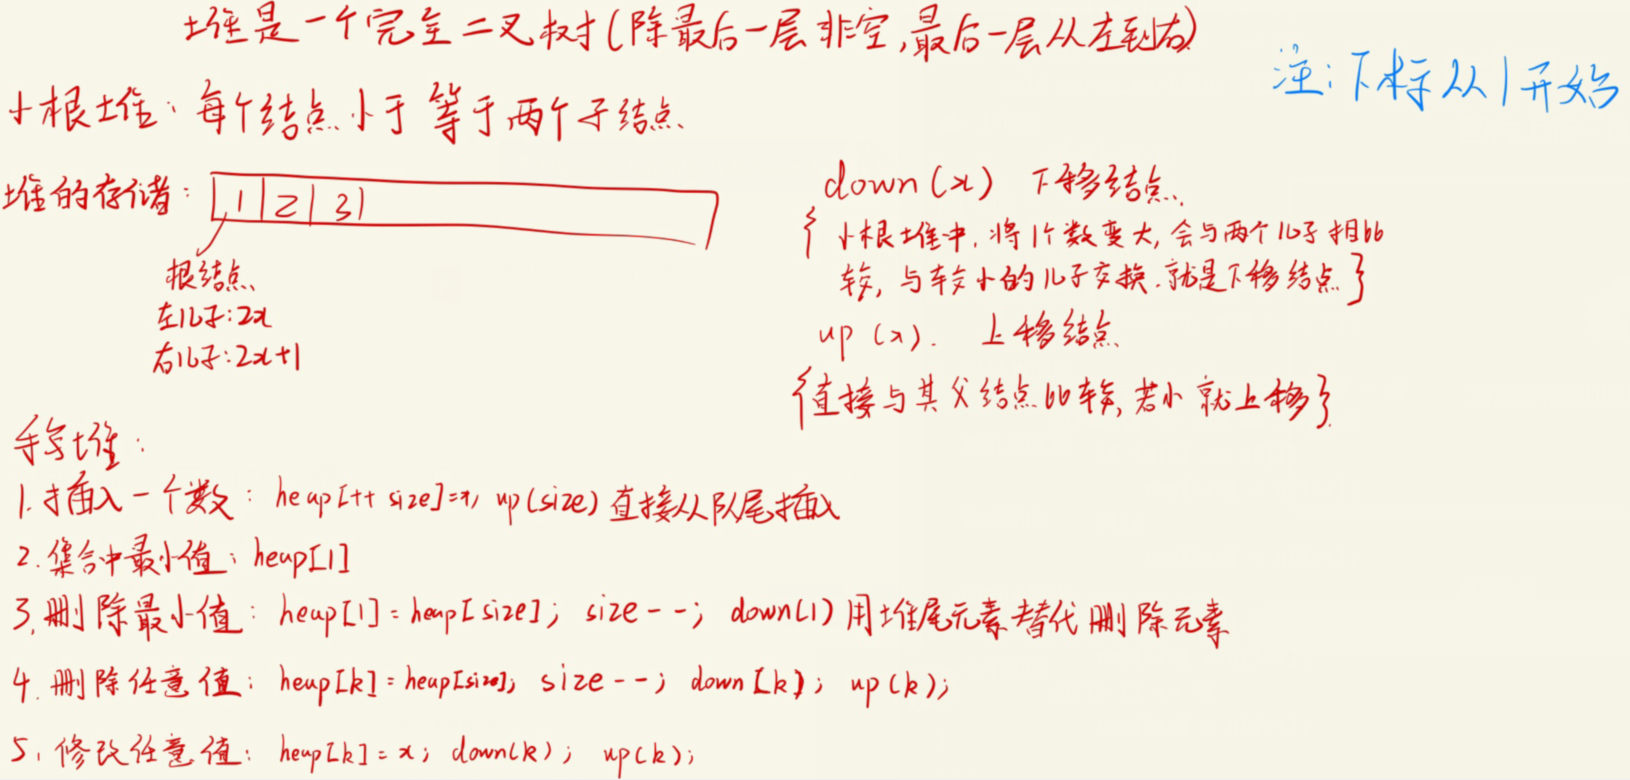 堆是一个完全二叉树(除最后一层非空,最后一层从左到右)
注:下标从1开始
小根堆:每个结点小于等于两个子结点
堆的存储: 1 2 3
根结点
左儿子:2x
右儿子:2x+1
down(x) 下移结点
{小根堆中,将1个数变大,会与两个儿子相比
较,与较小的儿子交换.就是下移结点}
up(x). 上移结点
{直接与其父结点比较,若小就上移}
手写堆:
1.插入一个数: heap[++size]=x, up(size) 直接从队尾插入
2.集合中最小值: heap[1]
3.删除最小值: heap[1]=heap[size]; size--; down(1) 用堆尾元素替代删除元素
4.删除任意值: heap[k]=heap[size]; size--; down[k); up(k);
5.修改任意值: heap[k]=x; down(k); up(k);